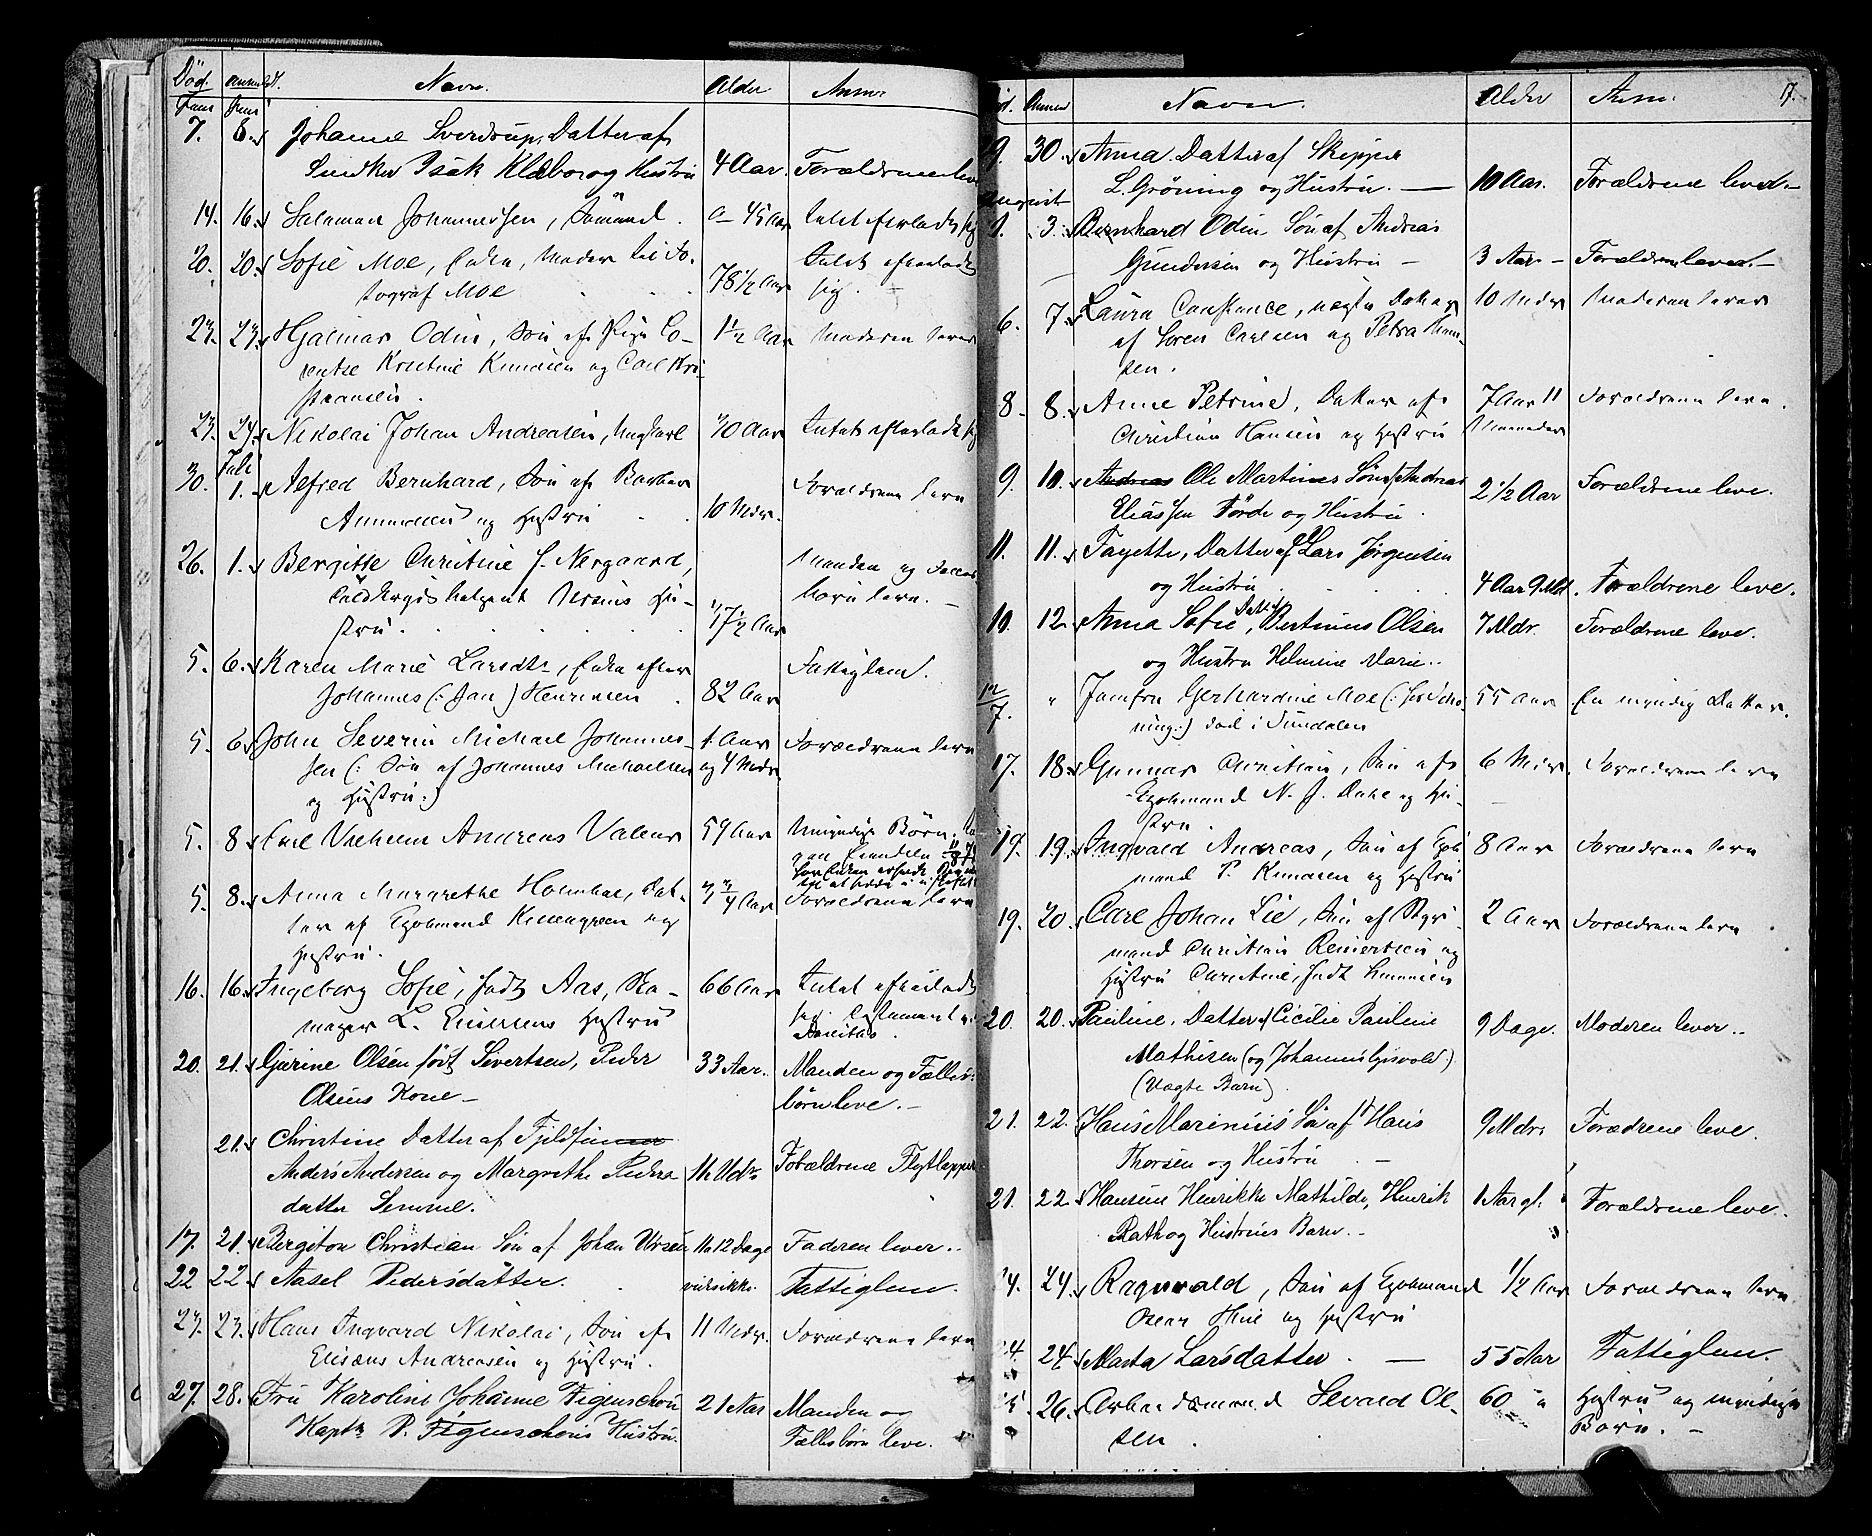 Død. Anmeldt. Navn. Alder Anm:
Juni Juni
7. 8. Johanne Sverdrup, Datter af
Snedker Isak Klæbo og Hustru 4 Aar. Forældrene leve
14. 16. Salamon Johannessen, Sømand. 45 Aar Intet efterladt sig
20. 20. Sofie Moe, Enke, Moder til Fo-
tograf Moe 78 1/2 Aar Intet efterladt
sig.
23. 23. Hjalmar Odin, Søn af Pige Lo-
rentse Kristine Knudsen og Carl Kri-
stiansen. 1 1/2 Aar Moderen lever
23. 24. Nikolai Johan Andreasen, Ungkarl 70 Aar Intet efterladt sig
Juli
30. 1. Alfred Bernhard, Søn af Barber
Amundsen og Hustru 10 Mdr. Forældrene leve
26. 1. Bergitte Christine f. Nergaard,
Hustru. 1/2 Aar Manden og Fælles
børn leve. —
5. 6. Karen Marie Larsdtr, Enke efter
Johannes (: Jan) Henriksen 82 Aar Fattiglem.
5. 6. John Severin Michael Johannes-
sen (: Søn af Johannes Michaelsen
og Hustru:) 1 Aar
og 4 Mdr Forældrene leve
5. 8. Carl Vilhelm Andreas Valeur 59 Aar Umyndige Børn.
5. 8. Anna Margrethe Holmboe, Dat-
ter af Kjøbmand Killengreen og
Hustru. 3/4 Aar Forældrene leve
16. 16. Ingeborg Sofie, født Aas, Ma-
mager L. Hustru 66 Aar Intet efterladt
sig. Testament
20. 21. Gjærine Olsen født Sivertsen, Peder
Olsens Kone — 33 Aar. Manden og Fælles-
børn leve. —
21. Christine Datter af Fjeldfinner
Anders Andersen og Margrethe Peders
datter Semmel. 16 Mdr Forældrene Flytlapper
17. 21. Bergiton Christian Søn af Johan Olsen 11a12 Dage Faderen lever..
22 22 Aasel Pedersdatter. vides ikke. Fattiglem.
23. 23. Hans Ingvard Nikolai, Søn af
Elisæus Andreasen og Hustru. 11 Mdr. Forældrene leve
27. 28. Fru Karoline Johanne Figenschou
Kaptn P. Figenschous Hustru. 21 Aar Manden og
Fællesbørn leve.
Anmeldt Navn. Alder Anm. 17.
29. 30. Anna. Datter af Skipper
L. Grøning og Hustru. — 10 Aar. Forældrene leve. —
August
1. 3. Bernhard Odin Søn af Andreas
Gundersen og Hustru — 3 Aar — Forældrene leve. —
6. 7. Laura Constance, uægte Datter
af Søren Carlsen og Petra Han-
sen. 10 Mdr Moderen lever
8. 8. Anne Petrine, Datter af
Christian Hansen og Hustru 7 Aar 11
Maaneder Forældrene leve.
9. 10. Andreas Ole Martinus Søn af Andreas
Eliassen Førde og Hustru. 2 1/2 Aar Forældrene leve.
11. 11. Fayette, Datter af Lars Jørgensen
og Hustru 4 Aar 9 Mdr. Forældrene leve.
10. 12. Anna Sofie, Datter Bertinius Olsen
og Hustru Helmine Marie.. 7 Mdr. Forældrene leve.
12/7. " Jomfru Gerhardine Moe (: hos Scho-
ning:) død i Sundalen 55 Aar En myndig Datter.
17. 18. Gunnar Christian, Søn af
Kjøbmand N. J. Dahl og Hu-
stru 6 Mdr. Forældrene leve
19. 19. Ingvald Andreas, Søn af Kjøb-
mand P. Knudsen og Hustru 8 Aar Forældrene leve
19. 20. Carl Johan Lie, Søn af Styr-
mand Christian Reinertsen og
Hustru Christine, født Knudsen 2 Aar Forældrene leve
20. 20. Pauline. Datter af Cicilie Pauline
Mathisen (og Johannes Grisvold)
(Uægte Barn). 9 Dage. Moderen lever..
21. 22. Hans Marinius Søn af Hans
Thorsen og Hustru — 9 Mdr. Forædrene leve.
21. 22. Hansine Henrikke Mathilde, Henrik
Rath og Hustrus Barn. — 1 Aar gl. Forældrene leve.
24. 24. Ragnvald, Søn af Kjøbmand
Oscar Hiie og Hustru 1/2 Aar Forældrene leve
24. 24. Marta Larsdatter. — 55 Aar Fattiglem.
26. Arbeidsmand Sevald Ol-
sen. 60 " Hustru og myndige
Børn. —